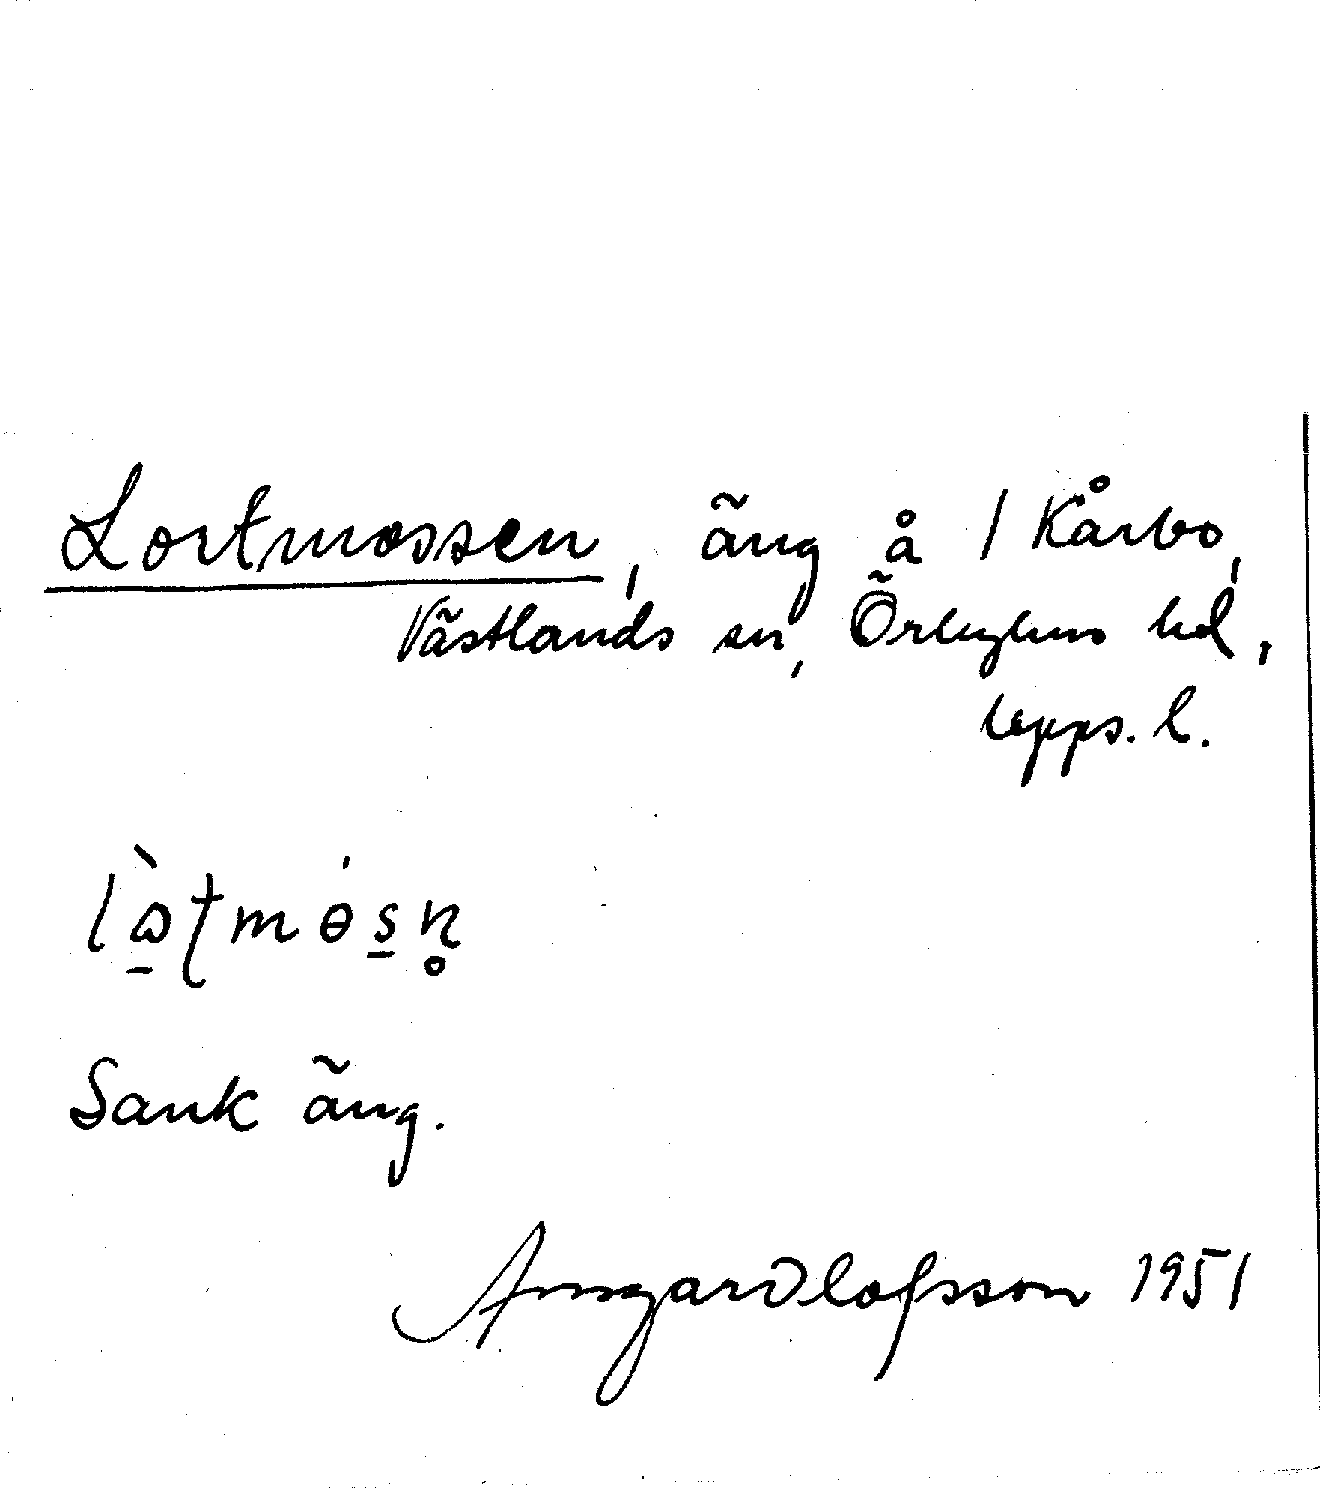 Lortmossen, äng å 1 Kårbo,
Västlands sn, Örbyhus hd,
Upps. l.
Sank äng.
Ansgar Olofsson 1951